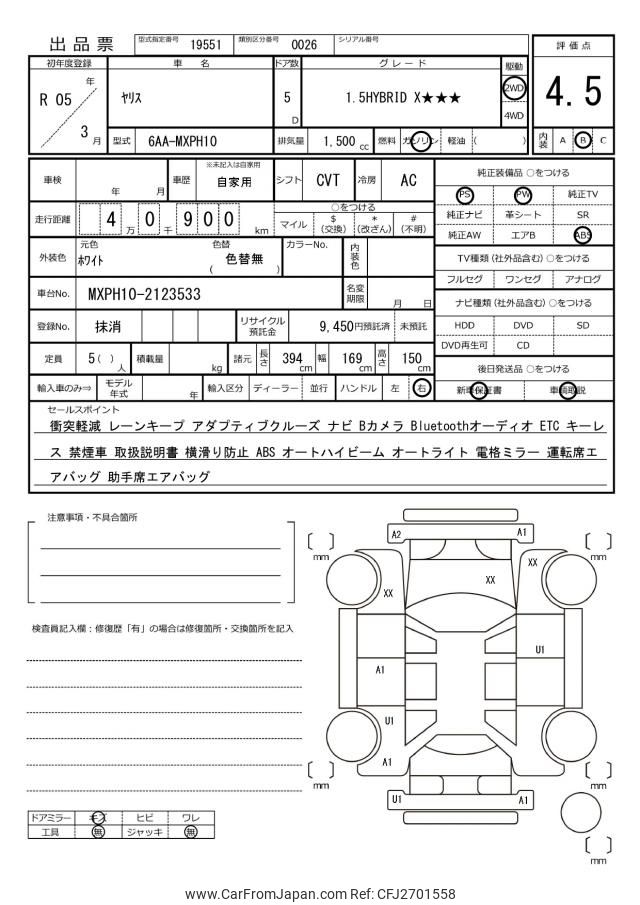 出品票
型式指定番号 19551 類別区分番号 0026 シリアル番号
評価点
4.5
初年度登録 車名 ドア数 グレード 駆動
R 05 年 / 3 月
ヤリス
5 D
1.5HYBRID X★★★
2WD
4WD
型式 6AA-MXPH10 排気量 1,500 cc 燃料 ガソリン 軽油 ( )
内装 A B C
車検 年 月 車歴 ※未記入は自家用 自家用 シフト CVT 冷房 AC
純正装備品 ○をつける
PS PW 純正TV
純正ナビ 革シート SR
純正AW エアB ABS
走行距離 4 万 0 千 9 0 0 km
○をつける
マイル $ (交換) * (改ざん) # (不明)
外装色 元色 ホワイト 色替 ( 色替無 ) カラーNo. 内装色
TV種類 (社外品含む) ○をつける
フルセグ ワンセグ アナログ
車台No. MXPH10-2123533 名変期限 月 日
ナビ種類 (社外品含む) ○をつける
HDD DVD SD
DVD再生可 CD
登録No. 抹消 リサイクル預託金 9,450円預託済 未預託
定員 5( ) 人 積載量 kg 諸元 長さ 394 cm 幅 169 cm 高さ 150 cm
後日発送品 ○をつける
新車保証書 車輌取説
輸入車のみ⇒ モデル年式 年 輸入区分 ディーラー 並行 ハンドル 左 右
セールスポイント
衝突軽減 レーンキープ アダプティブクルーズ ナビ Bカメラ Bluetoothオーディオ ETC キーレ
ス 禁煙車 取扱説明書 横滑り防止 ABS オートハイビーム オートライト 電格ミラー 運転席エ
アバッグ 助手席エアバッグ
注意事項・不具合箇所
検査員記入欄：修復歴「有」の場合は修復箇所・交換箇所を記入
A2 A1
[ ] mm [ ] mm
XX
XX
XX
U1
A1
U1
A1
[ ] mm [ ] mm
U1 A1
[ ] mm
ドアミラー キズ ヒビ ワレ
工具 無 ジャッキ 無
www.CarFromJapan.com Ref: CFJ2701558